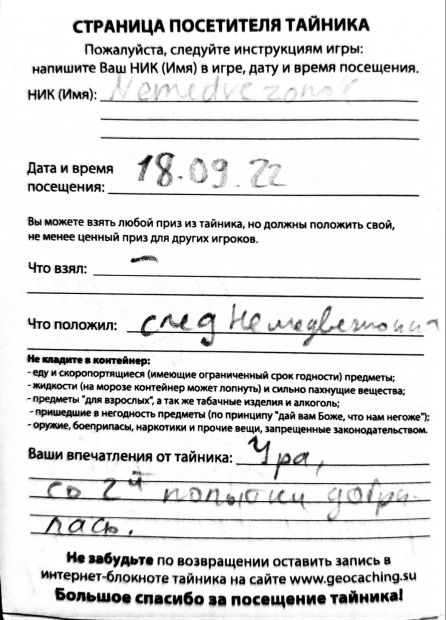 СТРАНИЦА ПОСЕТИТЕЛЯ ТАЙНИКА
Пожалуйста, следуйте инструкциям игры:
напишите Ваш НИК (Имя) в игре, дату и время посещения.
НИК (Имя): Nemedvezonok
Дата и время 18.09.22
посещения:
Вы можете взять любой приз из тайника, но должны положить свой,
не менее ценный приз для других игроков.
Что взял: —
Что положил: след Немедвежонка
Не кладите в контейнер:
- еду и скоропортящиеся (имеющие ограниченный срок годности) предметы;
- жидкости (на морозе контейнер может лопнуть) и сильно пахнущие вещества;
- предметы "для взрослых", а так же табачные изделия и алкоголь;
- пришедшие в негодность предметы (по принципу "дай вам Боже, что нам негоже");
- оружие, боеприпасы, наркотики и прочие вещи, запрещенные законодательством.
Ваши впечатления от тайника: Ура,
со 2й попытки добра-
лась.
Не забудьте по возвращении оставить запись в
интернет-блокноте тайника на сайте www.geocaching.su
Большое спасибо за посещение тайника!